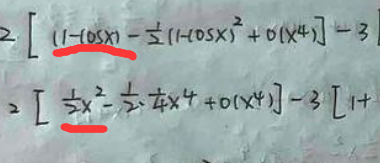 2 [ (1-cosx) - ½(1-cosx)² + o(x⁴)] - 3
2 [ ½x² - ½·¼x⁴ + o(x⁴)] - 3 [1+